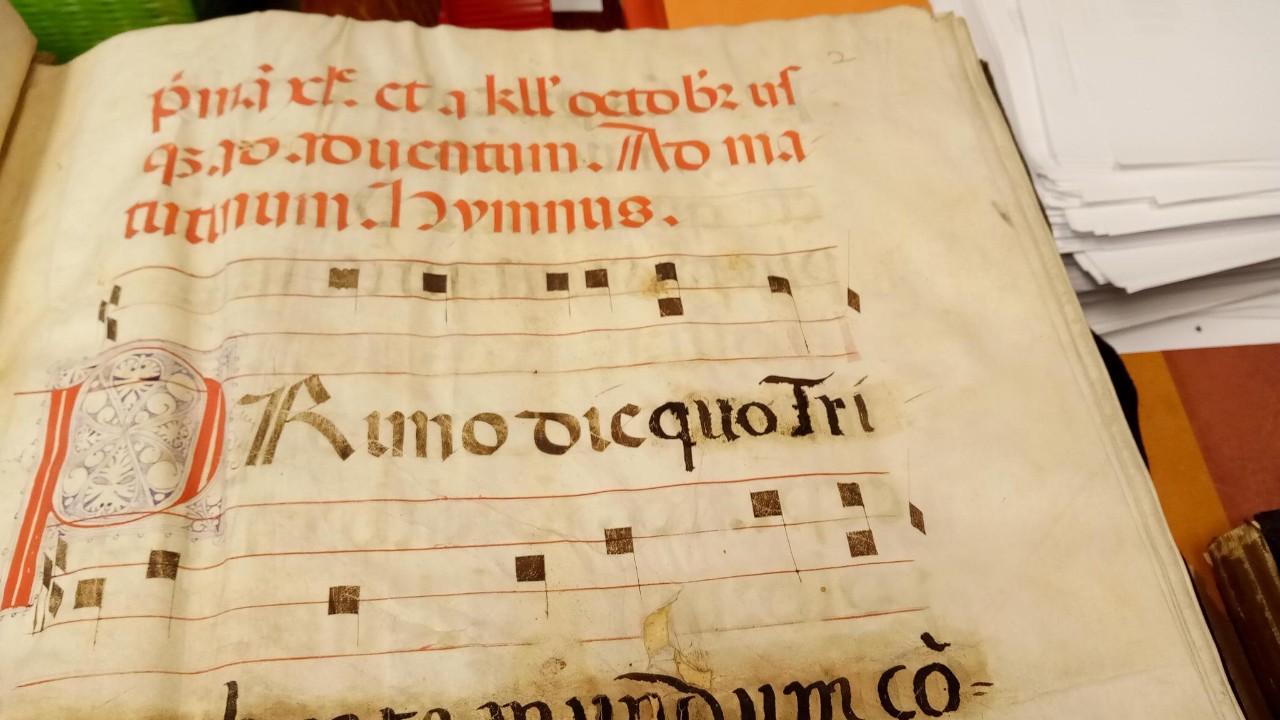 2
pͥmi xlͤ. et a kll' octobꝛ uſ
qȝ ad aduentum. Ad ma
tutinum. hymnus.
PRimo die quo Tri
beata mundum cò=